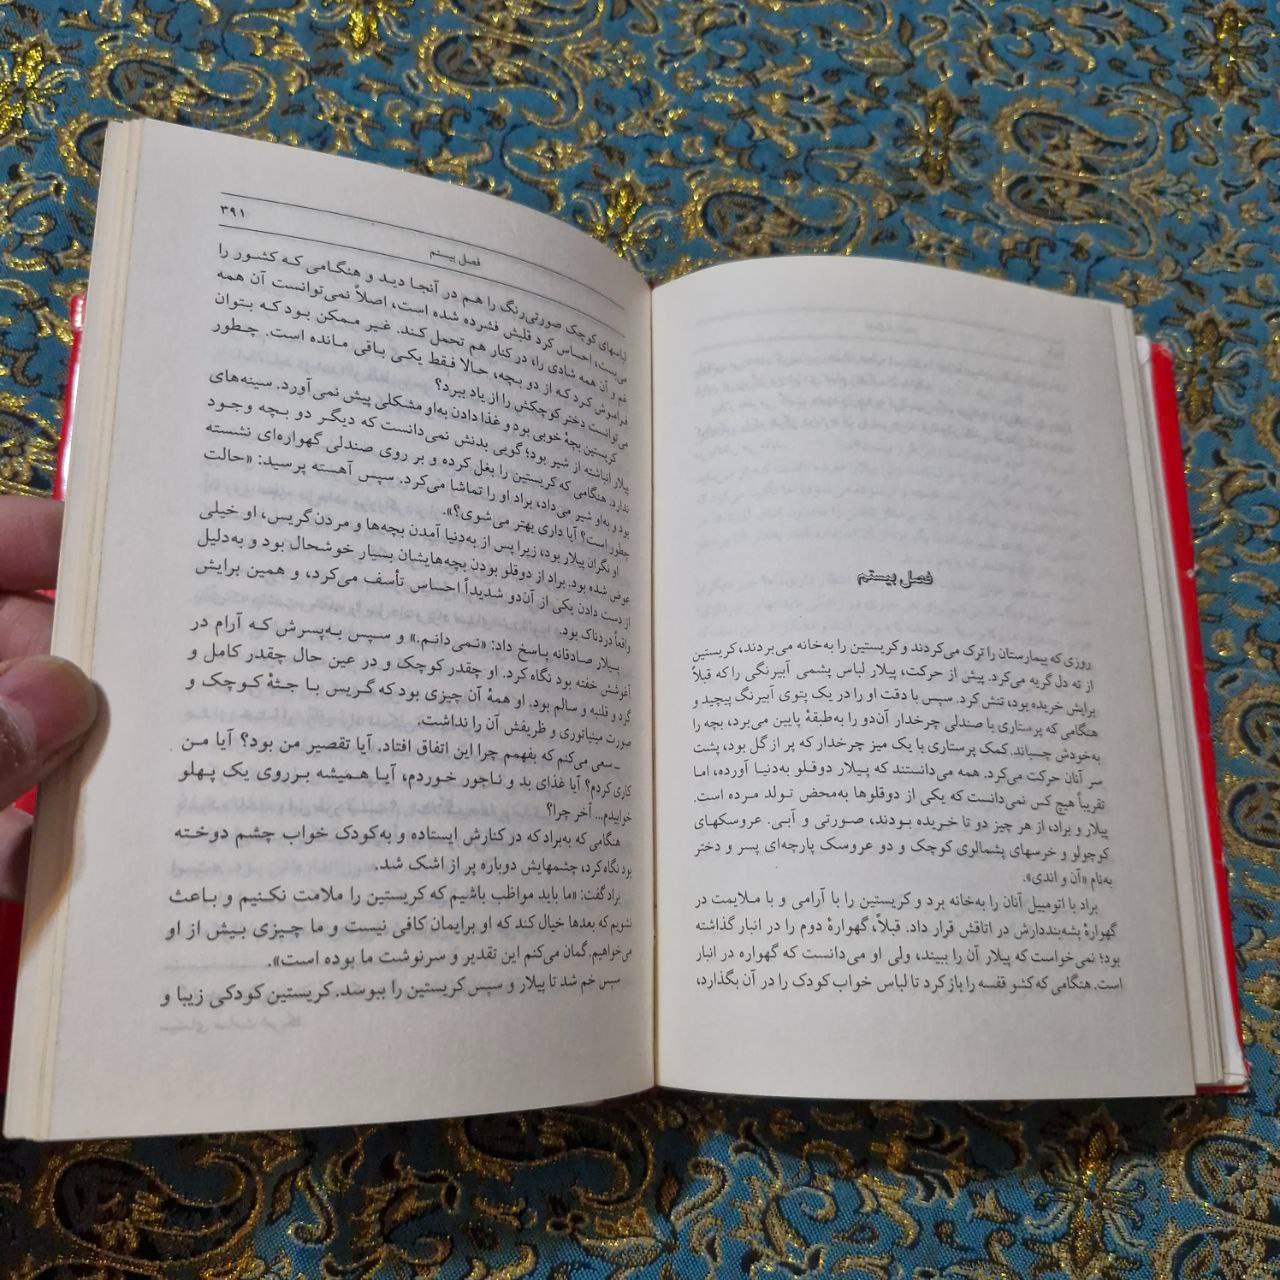 فصل بیستم
روزی که بیمارستان را ترک می‌کردند و کریستین را به‌خانه می‌بردند، کریستین
از ته دل گریه می‌کرد. پیش از حرکت، پیلار لباس پشمی آبیرنگی را که قبلاً
برایش خریده بود، تنش کرد. سپس با دقت او را در یک پتوی آبیرنگ پیچید و
هنگامی که پرستاری با صندلی چرخدار آن‌دو را به‌طبقهٔ پایین می‌برد، بچه را
به‌خودش چسباند. کمک پرستاری با یک میز چرخدار که پر از گل بود، پشت
سر آنان حرکت می‌کرد. همه می‌دانستند که پیلار دوقلو به‌دنیا آورده، اما
تقریباً هیچ کس نمی‌دانست که یکی از دوقلوها به‌محض تولد مرده است.
پیلار و براد، از هر چیز دو تا خریده بودند، صورتی و آبی. عروسکهای
کوچولو و خرسهای پشمالوی کوچک و دو عروسک پارچه‌ای پسر و دختر
به‌نام «آن و اندی».
براد با اتومبیل آنان را به‌خانه برد و کریستین را با آرامی و با ملایمت در
گهوارهٔ پشه‌بنددارش در اتاقش قرار داد. قبلاً، گهوارهٔ دوم را در انبار گذاشته
بود؛ نمی‌خواست که پیلار آن را ببیند، ولی او می‌دانست که گهواره در انبار
است. هنگامی که کشو قفسه را باز کرد تا لباس خواب کودک را در آن بگذارد،
۳۹۱
فصل بیستم
لباسهای کوچک صورتی‌رنگ را هم در آنجا دید و هنگامی که کشور را
می‌بست، احساس کرد قلبش فشرده شده است، اصلاً نمی‌توانست آن همه
غم و آن همه شادی را، در کنار هم تحمل کند. غیر ممکن بود که بتوان
فراموش کرد که از دو بچه، حالا فقط یکی باقی مانده است. چطور
می‌توانست دختر کوچکش را از یاد ببرد؟
کریستین بچهٔ خوبی بود و غذا دادن به‌او مشکلی پیش نمی‌آورد. سینه‌های
پیلار انباشته از شیر بود؛ گویی بدنش نمی‌دانست که دیگر دو بچه وجود
ندارد. هنگامی که کریستین را بغل کرده و بر روی صندلی گهواره‌ای نشسته
بود و به‌او شیر می‌داد، براد او را تماشا می‌کرد. سپس آهسته پرسید: «حالت
چطور است؟ آیا داری بهتر می‌شوی؟».
او نگران پیلار بود، زیرا پس از به‌دنیا آمدن بچه‌ها و مردن گریس، او خیلی
عوض شده بود. براد از دوقلو بودن بچه‌هایشان بسیار خوشحال بود و به‌دلیل
از دست دادن یکی از آن‌دو شدیداً احساس تأسف می‌کرد، و همین برایش
واقعاً دردناک بود.
پیلار صادقانه پاسخ داد: «نمی‌دانم.» و سپس به‌پسرش که آرام در
آغوشش خفته بود نگاه کرد. او چقدر کوچک و در عین حال چقدر کامل و
گرد و قلنبه و سالم بود. او همهٔ آن چیزی بود که گریس با جثهٔ کوچک و
صورت مینیاتوری و ظریفش آن را نداشت.
ـ سعی می‌کنم که بفهمم چرا این اتفاق افتاد. آیا تقصیر من بود؟ آیا من
کاری کردم؟ آیا غذای بد و ناجور خوردم، آیا همیشه بر روی یک پهلو
خوابیدم... آخر چرا؟
هنگامی که به‌براد که در کنارش ایستاده و به‌کودک خواب چشم دوخته
بود نگاه کرد، چشمهایش دوباره پر از اشک شد.
براد گفت: «ما باید مواظب باشیم که کریستین را ملامت نکنیم و باعث
نشویم که بعدها خیال کند که او برایمان کافی نیست و ما چیزی بیش از او
می‌خواهیم. گمان می‌کنم این تقدیر و سرنوشت ما بوده است».
سپس خم شد تا پیلار و سپس کریستین را ببوسد. کریستین کودکی زیبا و